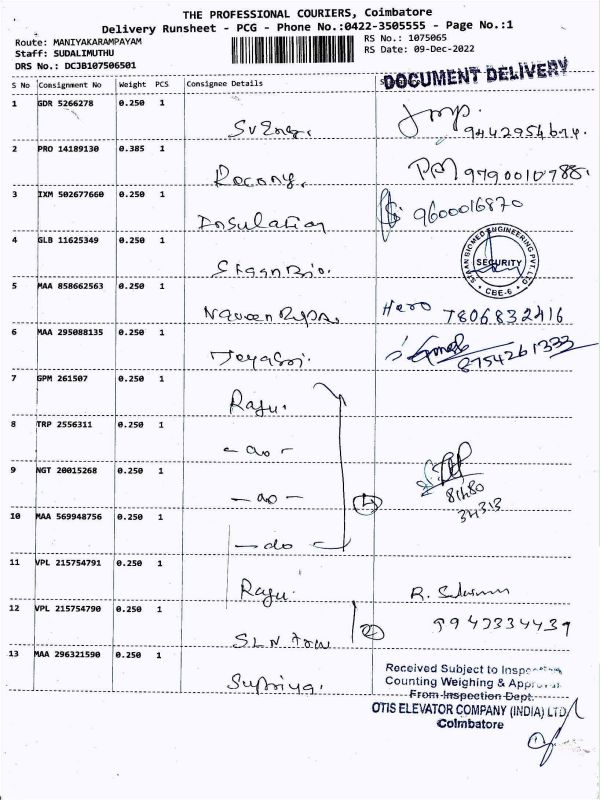 THE PROFESSIONAL COURIERS, Coimbatore
Delivery Runsheet - PCG - Phone No.:0422-3505555 - Page No.:1
Route: MANIYAKARAMPAYAM
RS No.: 1075065
Staff: SUDALIMUTHU
RS Date: 09-Dec-2022
DRS No.: DCJB107506501
DOCUMENT DELIVERY
S No Consignment No Weight PCS Consignee Details
1 GDR 5266278 0.250 1
2 PRO 14189130 0.385 1
Recony. 9790010788.
3 IXM 502677660 0.250 1
Insulation 9600016870
4 GLB 11625349 0.250 1
SPAAN BIOMED ENGINEERING PVT LTD
SECURITY
CBE-6
5 MAA 858662563 0.250 1
Naveen Hero 7806832416
6 MAA 295088135 0.250 1
Jeyasri. 8754261333
7 GPM 261507 0.250 1
Raju.
8 TRP 2556311 0.250 1
- do -
9 NGT 20015268 0.250 1
- do - 4
81480
34313
10 MAA 569948756 0.250 1
- do -
11 VPL 215754791 0.250 1
Raju. R.
12 VPL 215754790 0.250 1
SLN 2 9942334439
13 MAA 296321590 0.250 1
Supriya.
Received Subject to Inspection
Counting Weighing & Approval
From Inspection Dept.
OTIS ELEVATOR COMPANY (INDIA) LTD
Coimbatore